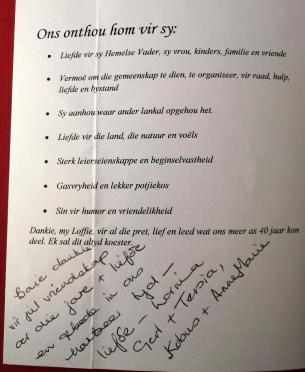 Ons onthou hom vir sy:
Liefde vir sy Hemelse Vader, sy vrou, kinders, familie en vriende
Vermoë om die gemeenskap te dien, te organiseer, vir raad, hulp,
liefde en bystand
Sy aanhou waar ander lankal opgehou het.
Liefde vir die land, die natuur en voëls
Sterk leierseienskappe en beginselvastheid
Gasvryheid en lekker potjiekos
Sin vir humor en vriendelikheid
Dankie, my Loffie, vir al die pret, lief en leed wat ons meer as 40 jaar kon
deel. Ek sal dit altyd koester.
Baie dankie
vir jul vriendskap
oor die jare + liefde
en in ons
tyd –
liefde –
Gert + Tersia,
Kobus + AnneMarie